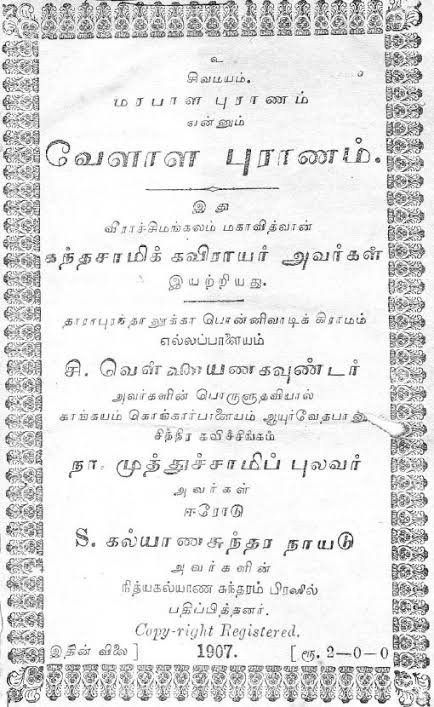 உ
சிவமயம்.
மரபாள புராணம்
என்னும்
வேளாள புராணம்.
இது
வீராச்சிமங்கலம் மகாவித்வான்
கந்தசாமிக் கவிராயர் அவர்கள்
இயற்றியது.
தாராபுரந்தாலூக்கா பொன்னிவாடிக் கிராமம்
எல்லப்பாளையம்
சி. கவுண்டர்
அவர்களின் பொருளுதவியால்
காங்கயம் கொங்கார்பாளையம்
சித்திர கவிச்சிங்கம்
நா. முத்துச்சாமிப் புலவர்
அவர்கள்
ஈரோடு
S. கல்யாணசுந்தர நாயடு
அவர்களின்
நித்யகல்யாண சுந்தரம் பிரஸில்
பதிப்பித்தனர்.
Copy-right Registered.
இதின் விலை ] 1907. [ ரூ. 2—0—0